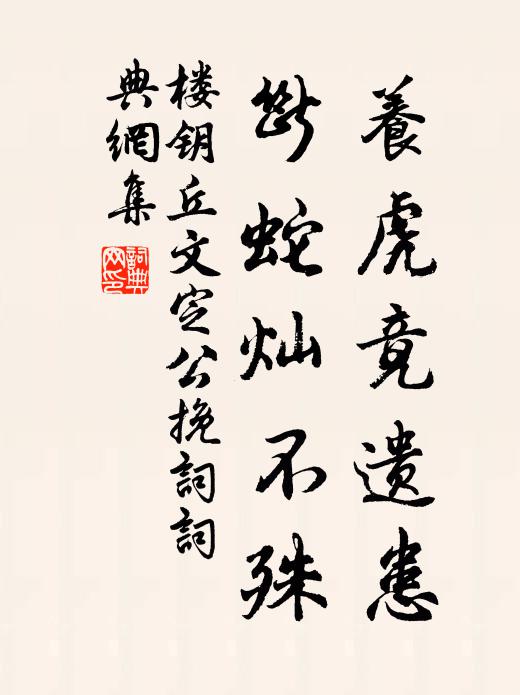 養虎竟遺患
斷蛇灿不殊
楼钥丘文定公挽詞詞
典網集
詞典網印